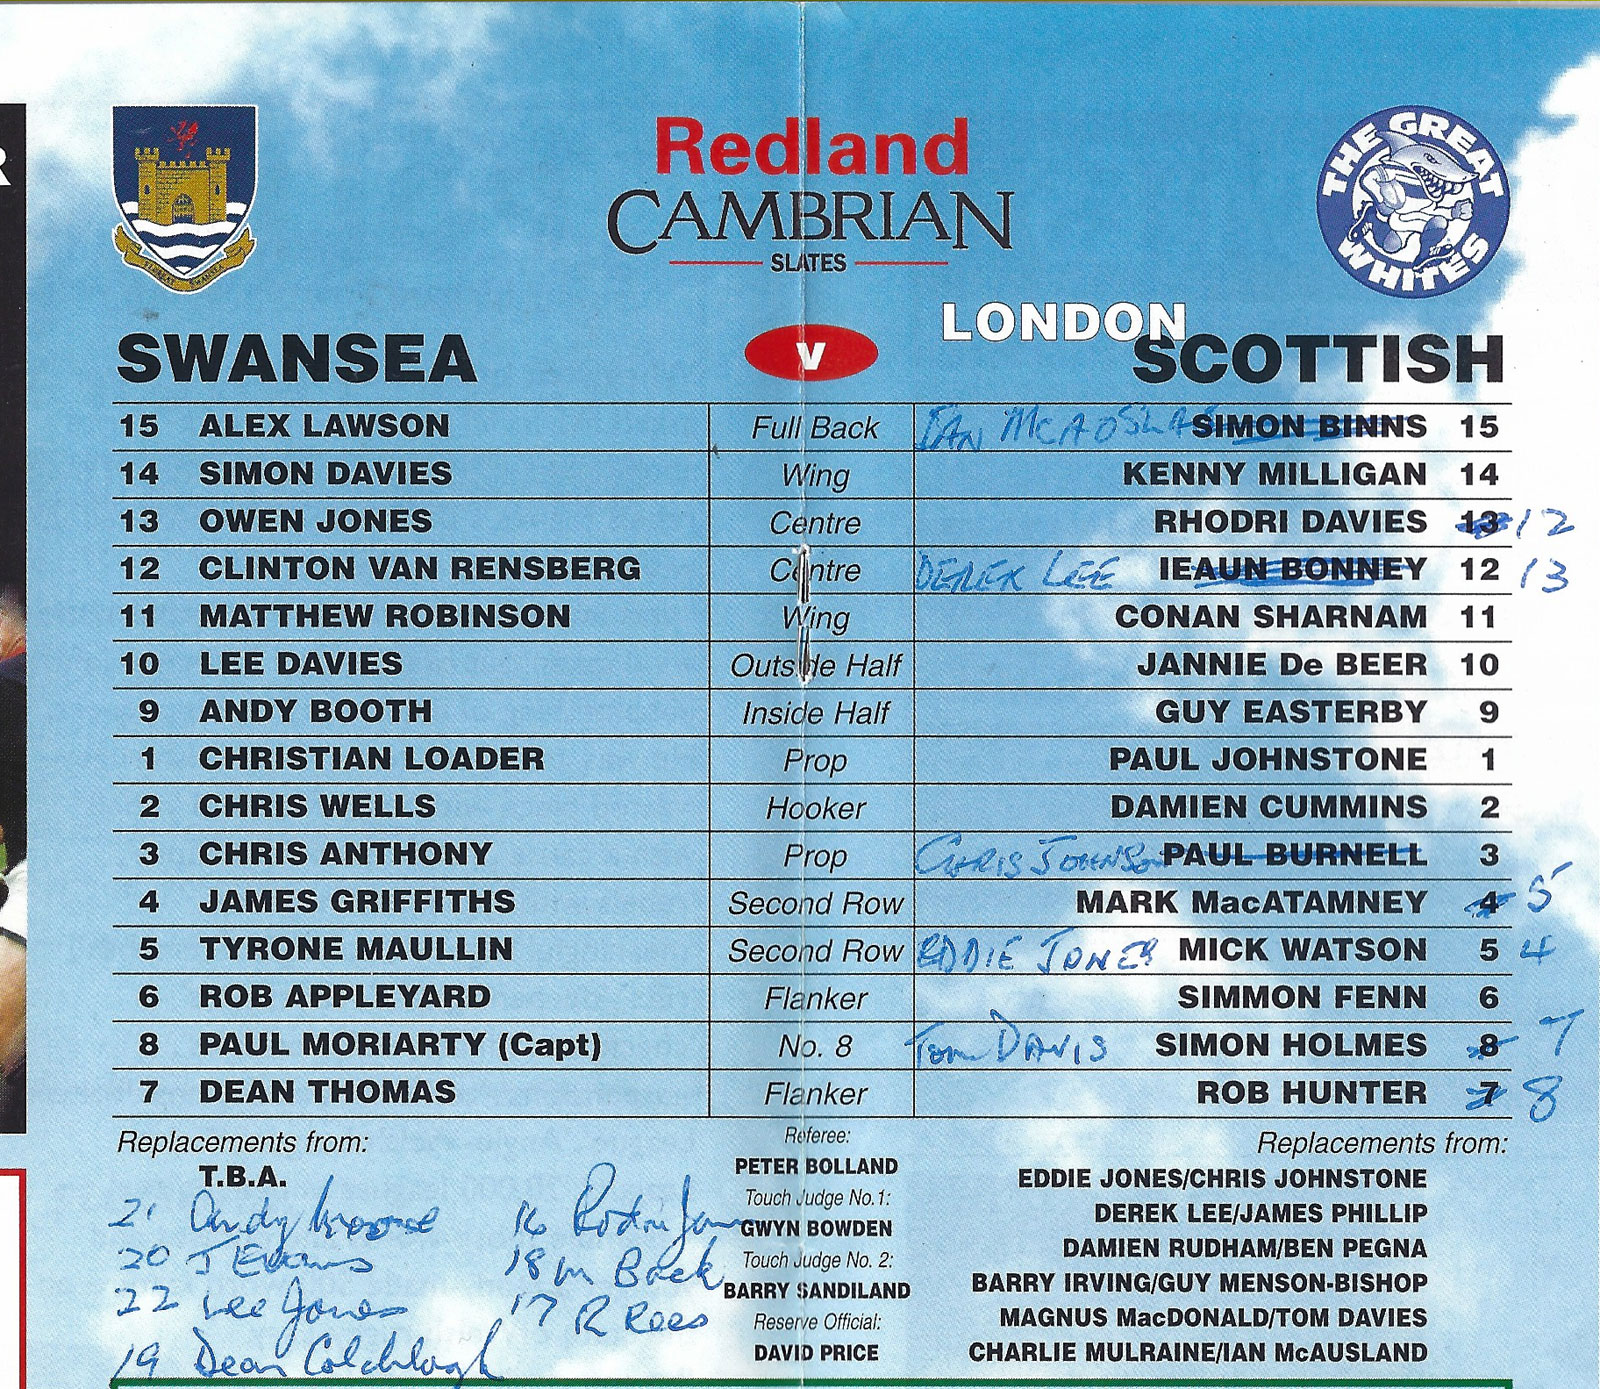 R
THE GREAT WHITES
Redland
CAMBRIAN
SLATES
SWANSEA v LONDON SCOTTISH
15 ALEX LAWSON Full Back IAN McAOSLA SIMON BINNS 15
14 SIMON DAVIES Wing KENNY MILLIGAN 14
13 OWEN JONES Centre RHODRI DAVIES 13 12
12 CLINTON VAN RENSBERG Centre DEREK LEE IEAUN BONNEY 12 13
11 MATTHEW ROBINSON Wing CONAN SHARNAM 11
10 LEE DAVIES Outside Half JANNIE De BEER 10
9 ANDY BOOTH Inside Half GUY EASTERBY 9
1 CHRISTIAN LOADER Prop PAUL JOHNSTONE 1
2 CHRIS WELLS Hooker DAMIEN CUMMINS 2
3 CHRIS ANTHONY Prop CHRIS JOHNSON PAUL BURNELL 3
4 JAMES GRIFFITHS Second Row MARK MacATAMNEY 4 5
5 TYRONE MAULLIN Second Row EDDIE JONES MICK WATSON 5 4
6 ROB APPLEYARD Flanker SIMMON FENN 6
8 PAUL MORIARTY (Capt) No. 8 Tom DAVIS SIMON HOLMES 8 7
7 DEAN THOMAS Flanker ROB HUNTER 7 8
Replacements from:
T.B.A.
21 Andy
20 J Evans
22 Lee Jones
19 Dean Colclough
16
18 m Back
17 R Rees
Referee:
PETER BOLLAND
Touch Judge No.1:
GWYN BOWDEN
Touch Judge No. 2:
BARRY SANDILAND
Reserve Official:
DAVID PRICE
Replacements from:
EDDIE JONES/CHRIS JOHNSTONE
DEREK LEE/JAMES PHILLIP
DAMIEN RUDHAM/BEN PEGNA
BARRY IRVING/GUY MENSON-BISHOP
MAGNUS MacDONALD/TOM DAVIES
CHARLIE MULRAINE/IAN McAUSLAND